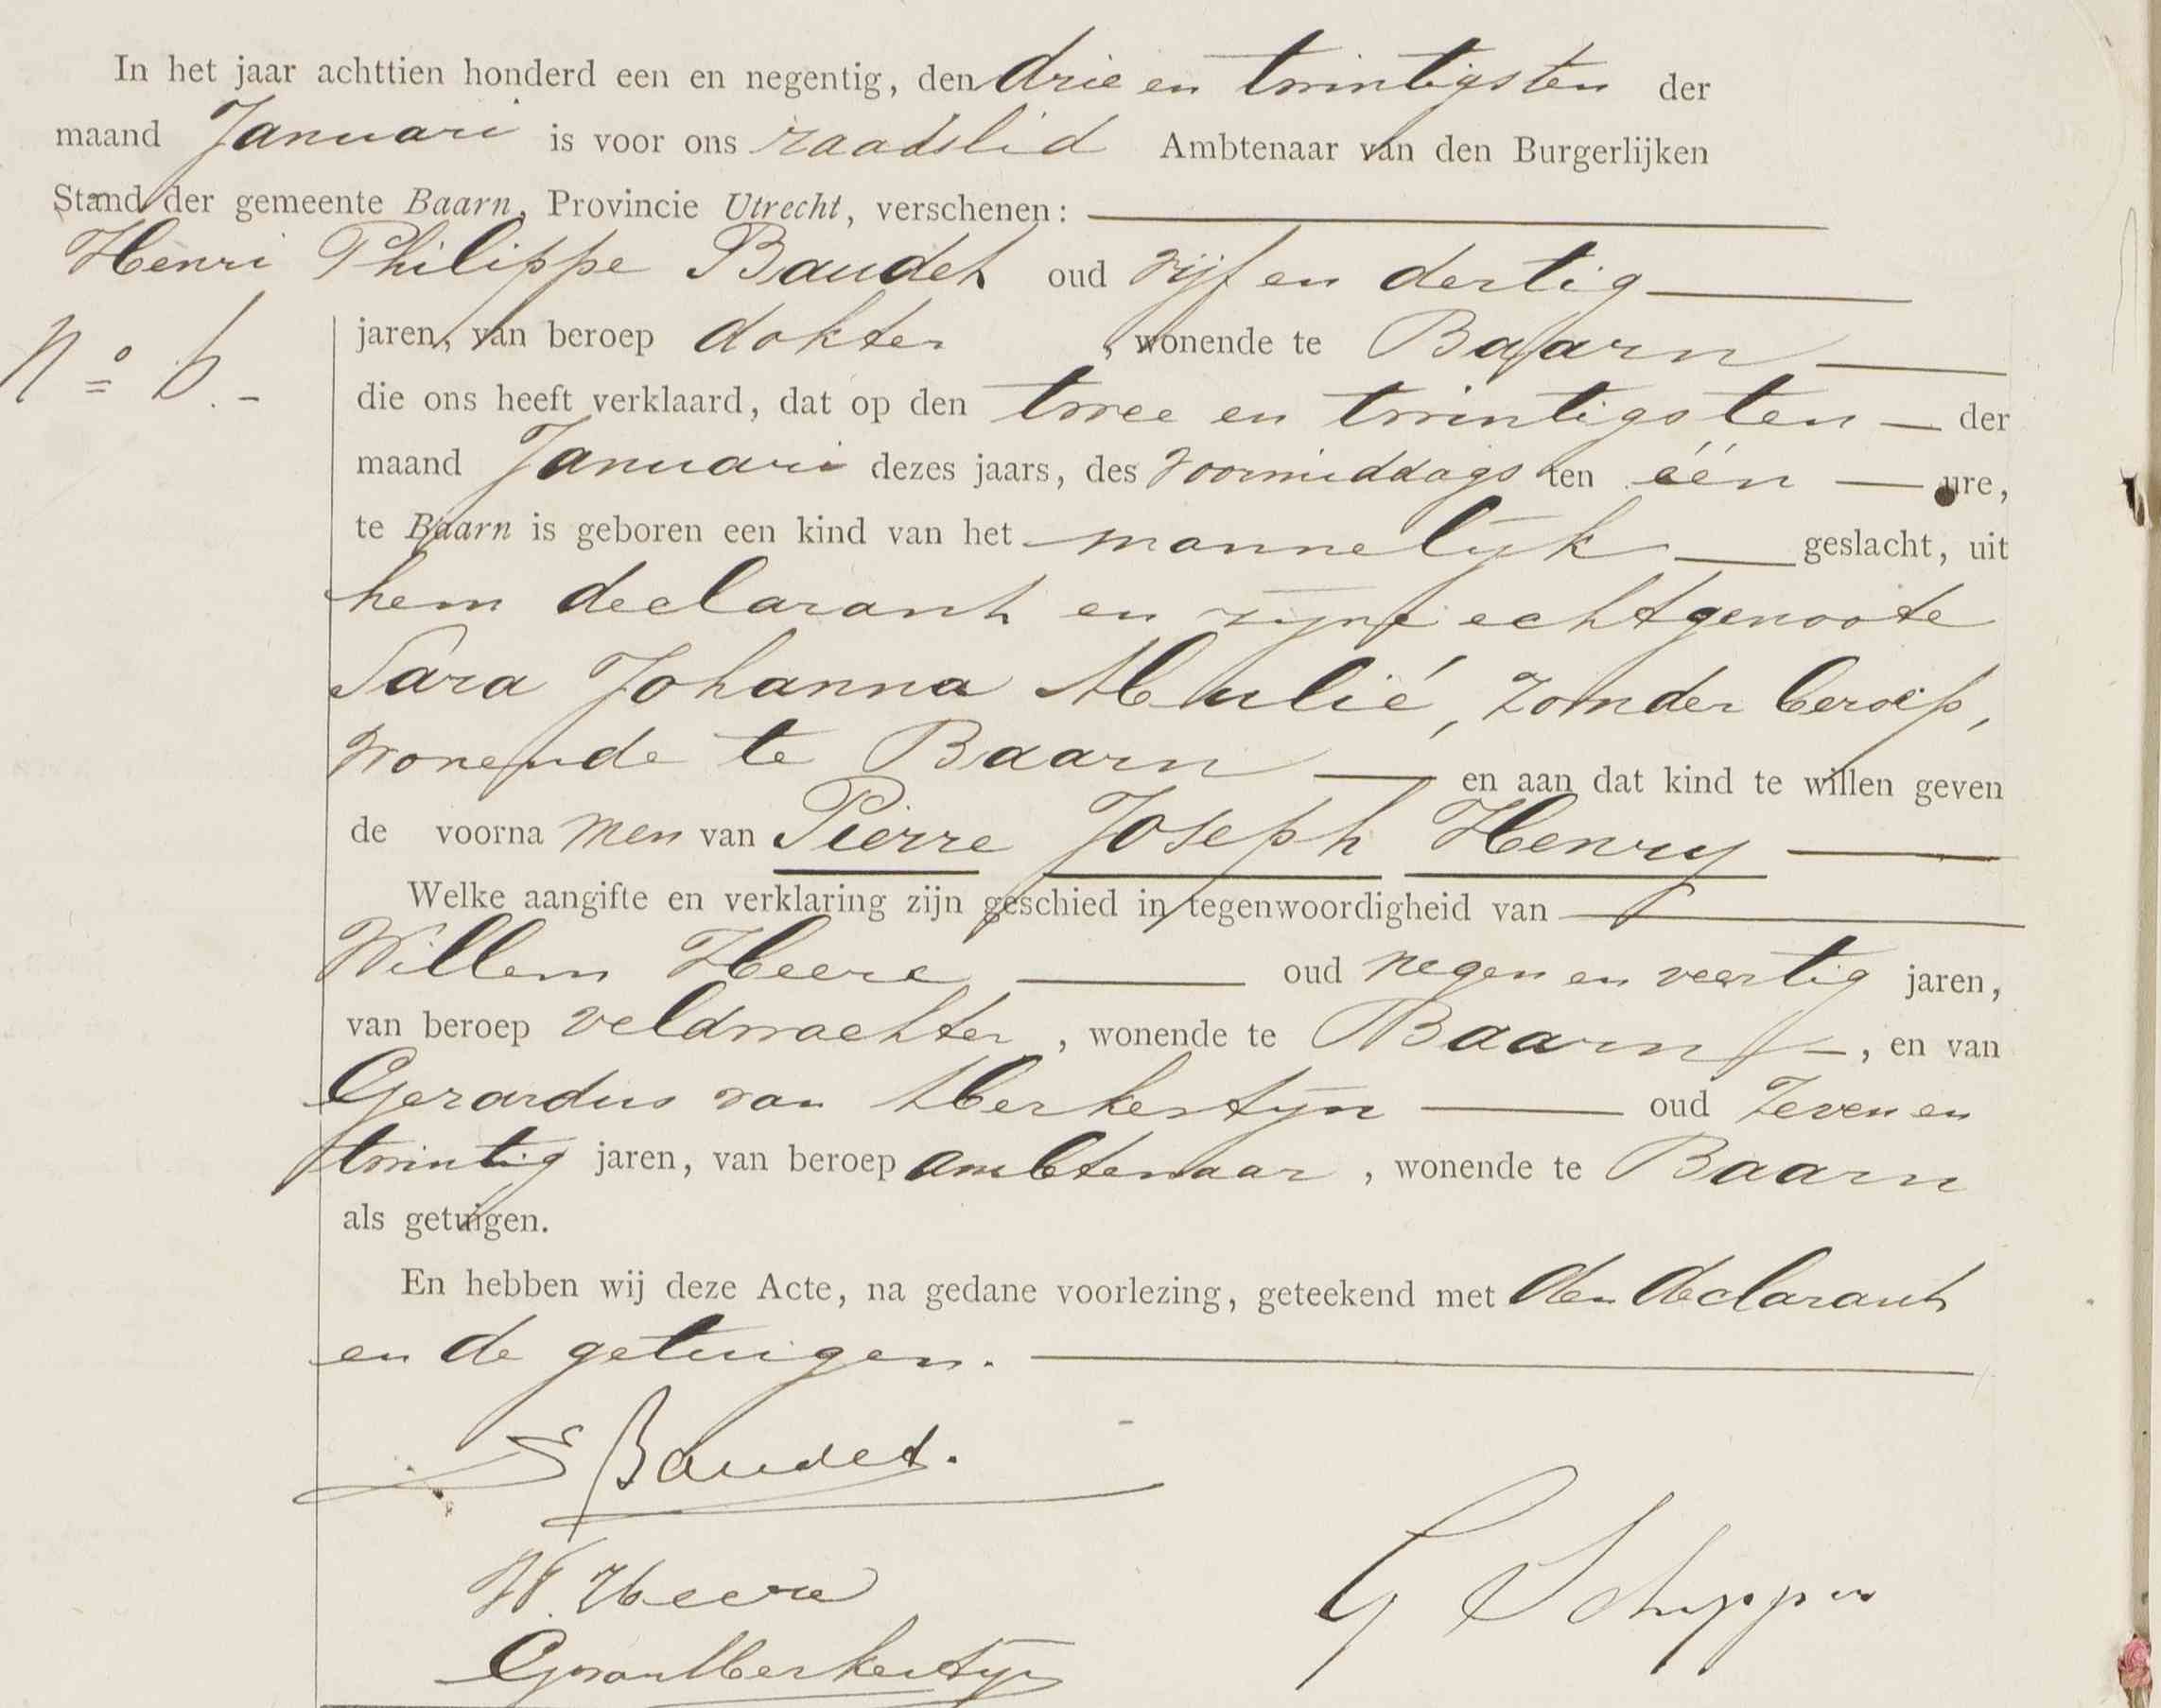 In het jaar achttien honderd een en negentig, den drie en twintigsten der
maand Januari is voor ons raadslid Ambtenaar van den Burgerlijken
Stand der gemeente Baarn, Provincie Utrecht, verschenen:
Henri Philippe Baudet oud vijf en dertig
jaren, van beroep dokter, wonende te Baarn
No 6.-
die ons heeft verklaard, dat op den twee en twintigsten der
maand Januari dezes jaars, des voormiddags ten één ure,
te Baarn is geboren een kind van het mannelijk geslacht, uit
hem declarant en zijne echtgenoote
Sara Johanna Mulié, zonder beroep,
wonende te Baarn en aan dat kind te willen geven
de voornamen van Pierre Joseph Henry
Welke aangifte en verklaring zijn geschied in tegenwoordigheid van
Willem Heere oud negen en veertig jaren,
van beroep veldwachter, wonende te Baarn, en van
Gerardus van Merkestijn oud zeven en
twintig jaren, van beroep ambtenaar, wonende te Baarn
als getuigen.
En hebben wij deze Acte, na gedane voorlezing, geteekend met den declarant
en de getuigen.
Baudet.
W. Heere
G Schipper
GvanMerkestijn